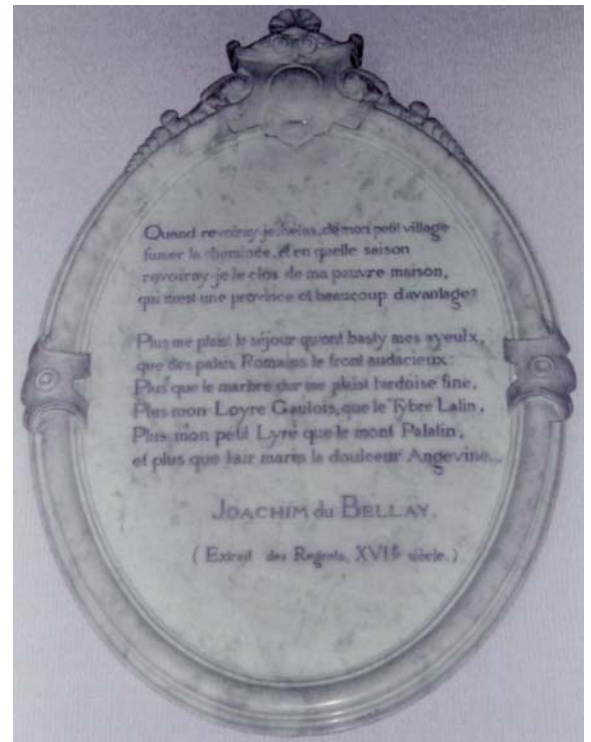 Quand revoiray-je, helas, de mon petit village
fumer la cheminée, et en quelle saison
revoiray-je le clos de ma pauvre maison,
qui m'est une province et beaucoup d'avantage?
Plus me plaist le séjour qu'ont basty mes ayeulx,
que des palais Romains le front audacieux:
Plus que le marbre dur me plaist l'ardoise fine,
Plus mon Loyre Gaulois, que le Tybre Latin,
Plus mon petit Lyré que le mont Palatin,
et plus que l'air marin la doulceur Angevine...
JOACHIM du BELLAY.
(Extrait des Regrets, XVIe siècle.)